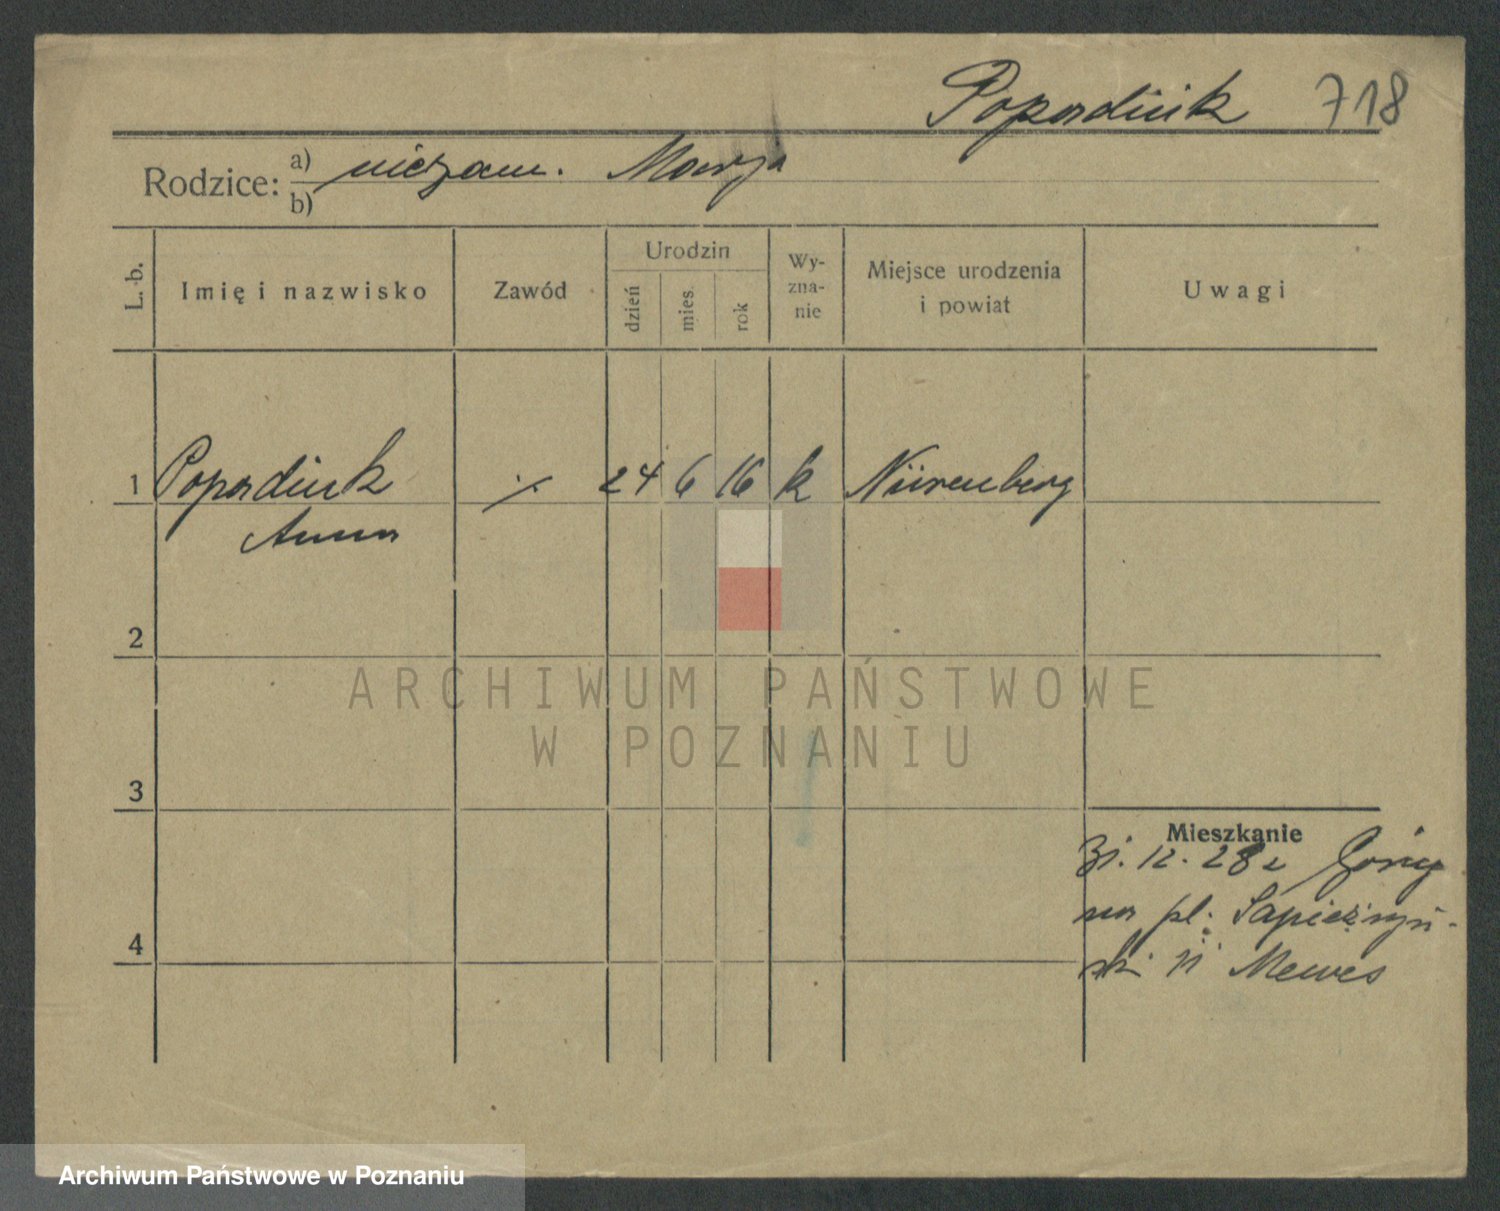 Popardiuk 718
Rodzice: a) niezam. Marja
b)
L. b. Imię i nazwisko Zawód Urodzin dzień mies. rok Wy-
zna-
nie Miejsce urodzenia
i powiat Uwagi
1 Popardiuk ·/· 24 6 16 k Nürenberg
Anna
2
ARCHIWUM PAŃSTWOWE
W POZNANIU
3
Mieszkanie
31. 12. 28 z
na pl. Sapieżyń-
ski Mewes
4
Archiwum Państwowe w Poznaniu